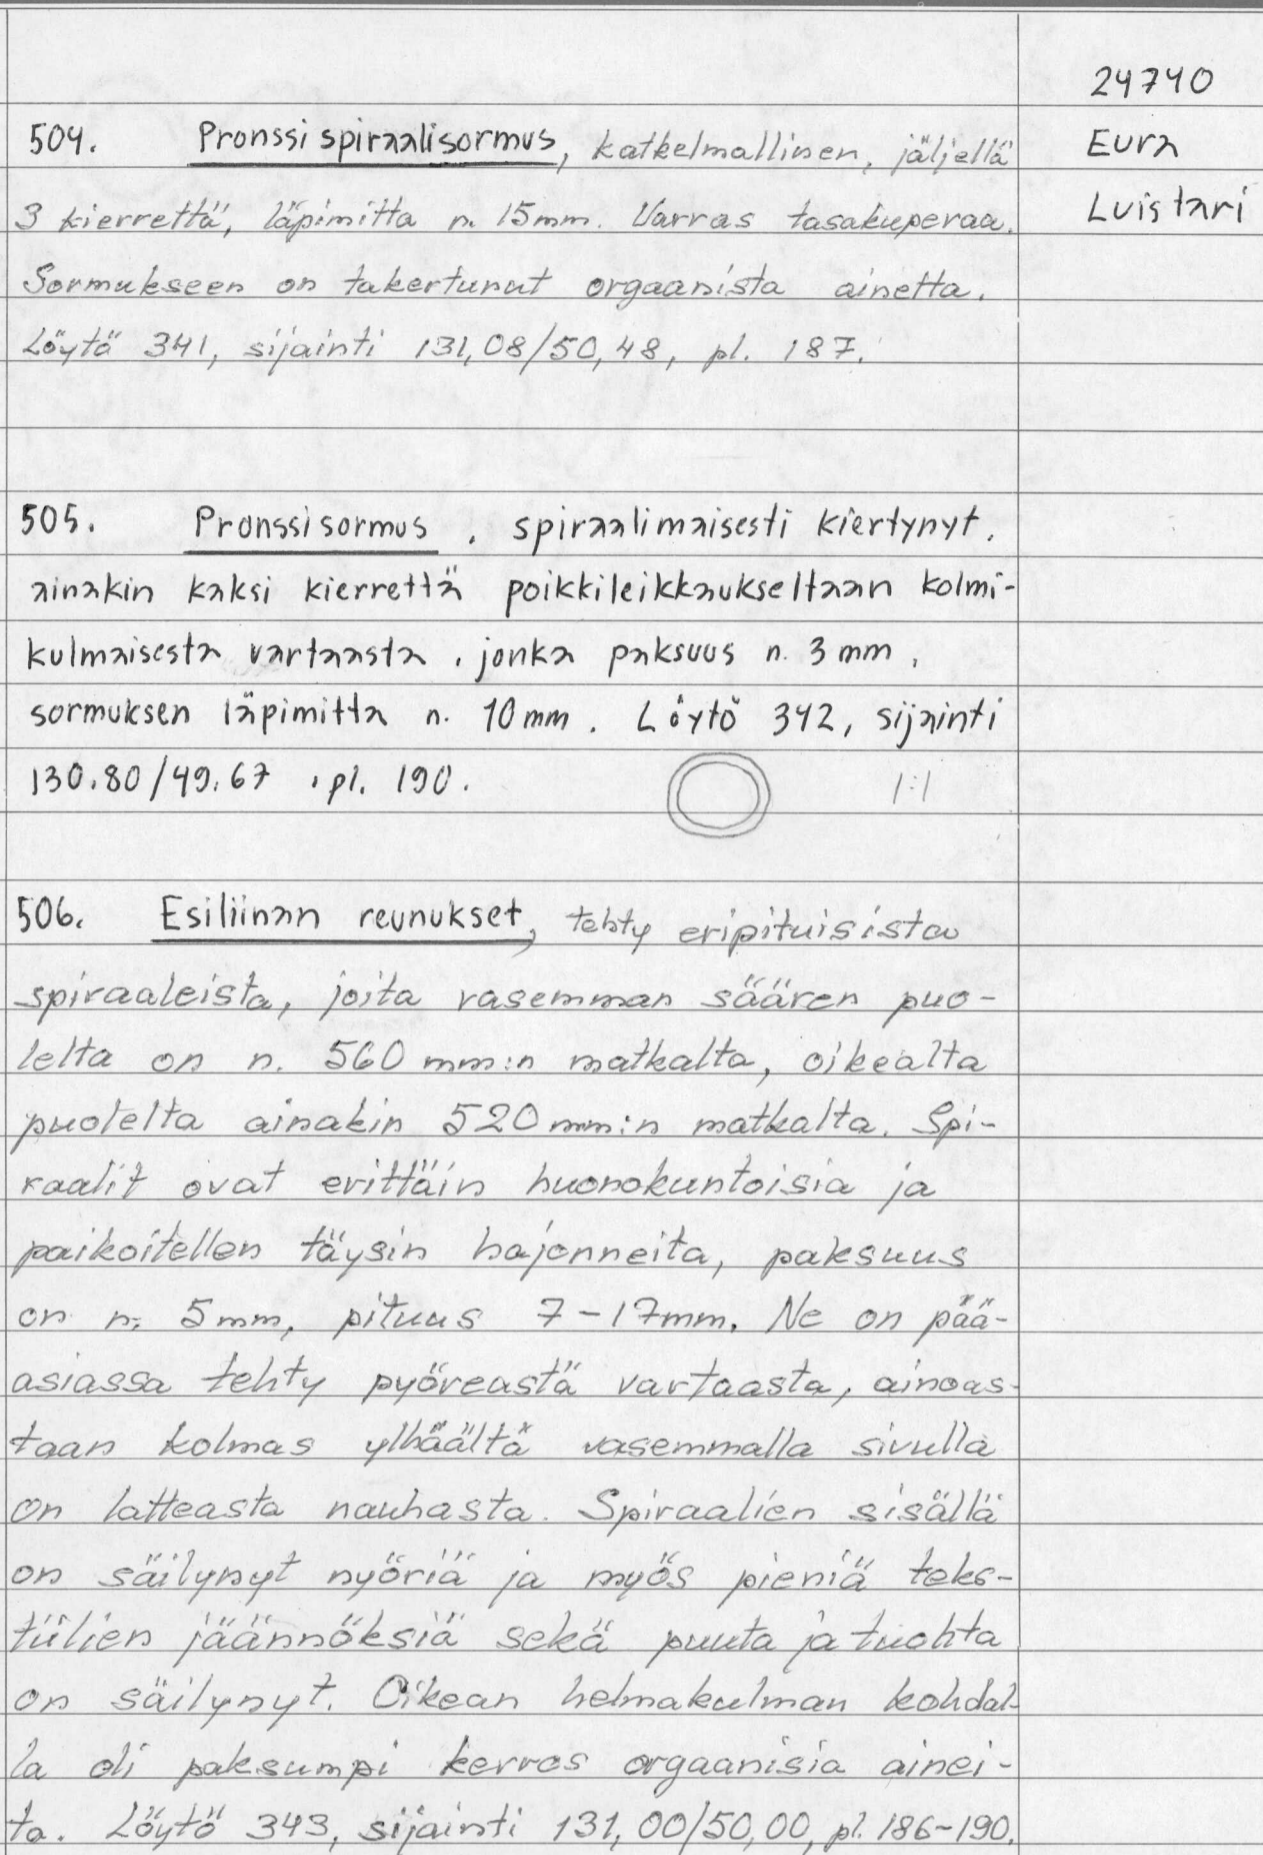 24740
Eura
Luistari
504. Pronssispiraalisormus, katkelmallinen, jäljellä
3 kierrettä, läpimitta n. 15mm. Varras tasakuperaa.
Sormukseen on takertunut orgaanista ainetta.
Löytö 341, sijainti 131,08/50,48, pl. 187.
505. Pronssisormus, spiraalimaisesti kiertynyt,
ainakin kaksi kierrettä poikkileikkaukseltaan kolmi-
kulmaisesta vartaasta, jonka paksuus n. 3 mm,
sormuksen läpimitta n. 10 mm. Löytö 342, sijainti
130.80/49.67, pl. 190.
1:1
506. Esiliinan reunukset, tehty eripituisista
spiraaleista, joita vasemman säären puo-
lelta on n. 560 mm:n matkalta, oikealta
puolelta ainakin 520 mm:n matkalta. Spi-
raalit ovat erittäin huonokuntoisia ja
paikoitellen täysin hajonneita, paksuus
on n. 5mm, pituus 7-17mm. Ne on pää-
asiassa tehty pyöreästä vartaasta, ainoas-
taan kolmas ylhäältä vasemmalla sivulla
on latteasta nauhasta. Spiraalien sisällä
on säilynyt nyöriä ja myös pieniä teks-
tiilien jäännöksiä sekä puuta ja tuohta
on säilynyt. Oikean helmakulman kohdal-
la oli paksumpi kerros orgaanisia ainei-
ta. Löytö 343, sijainti 131,00/50,00, pl. 186-190.